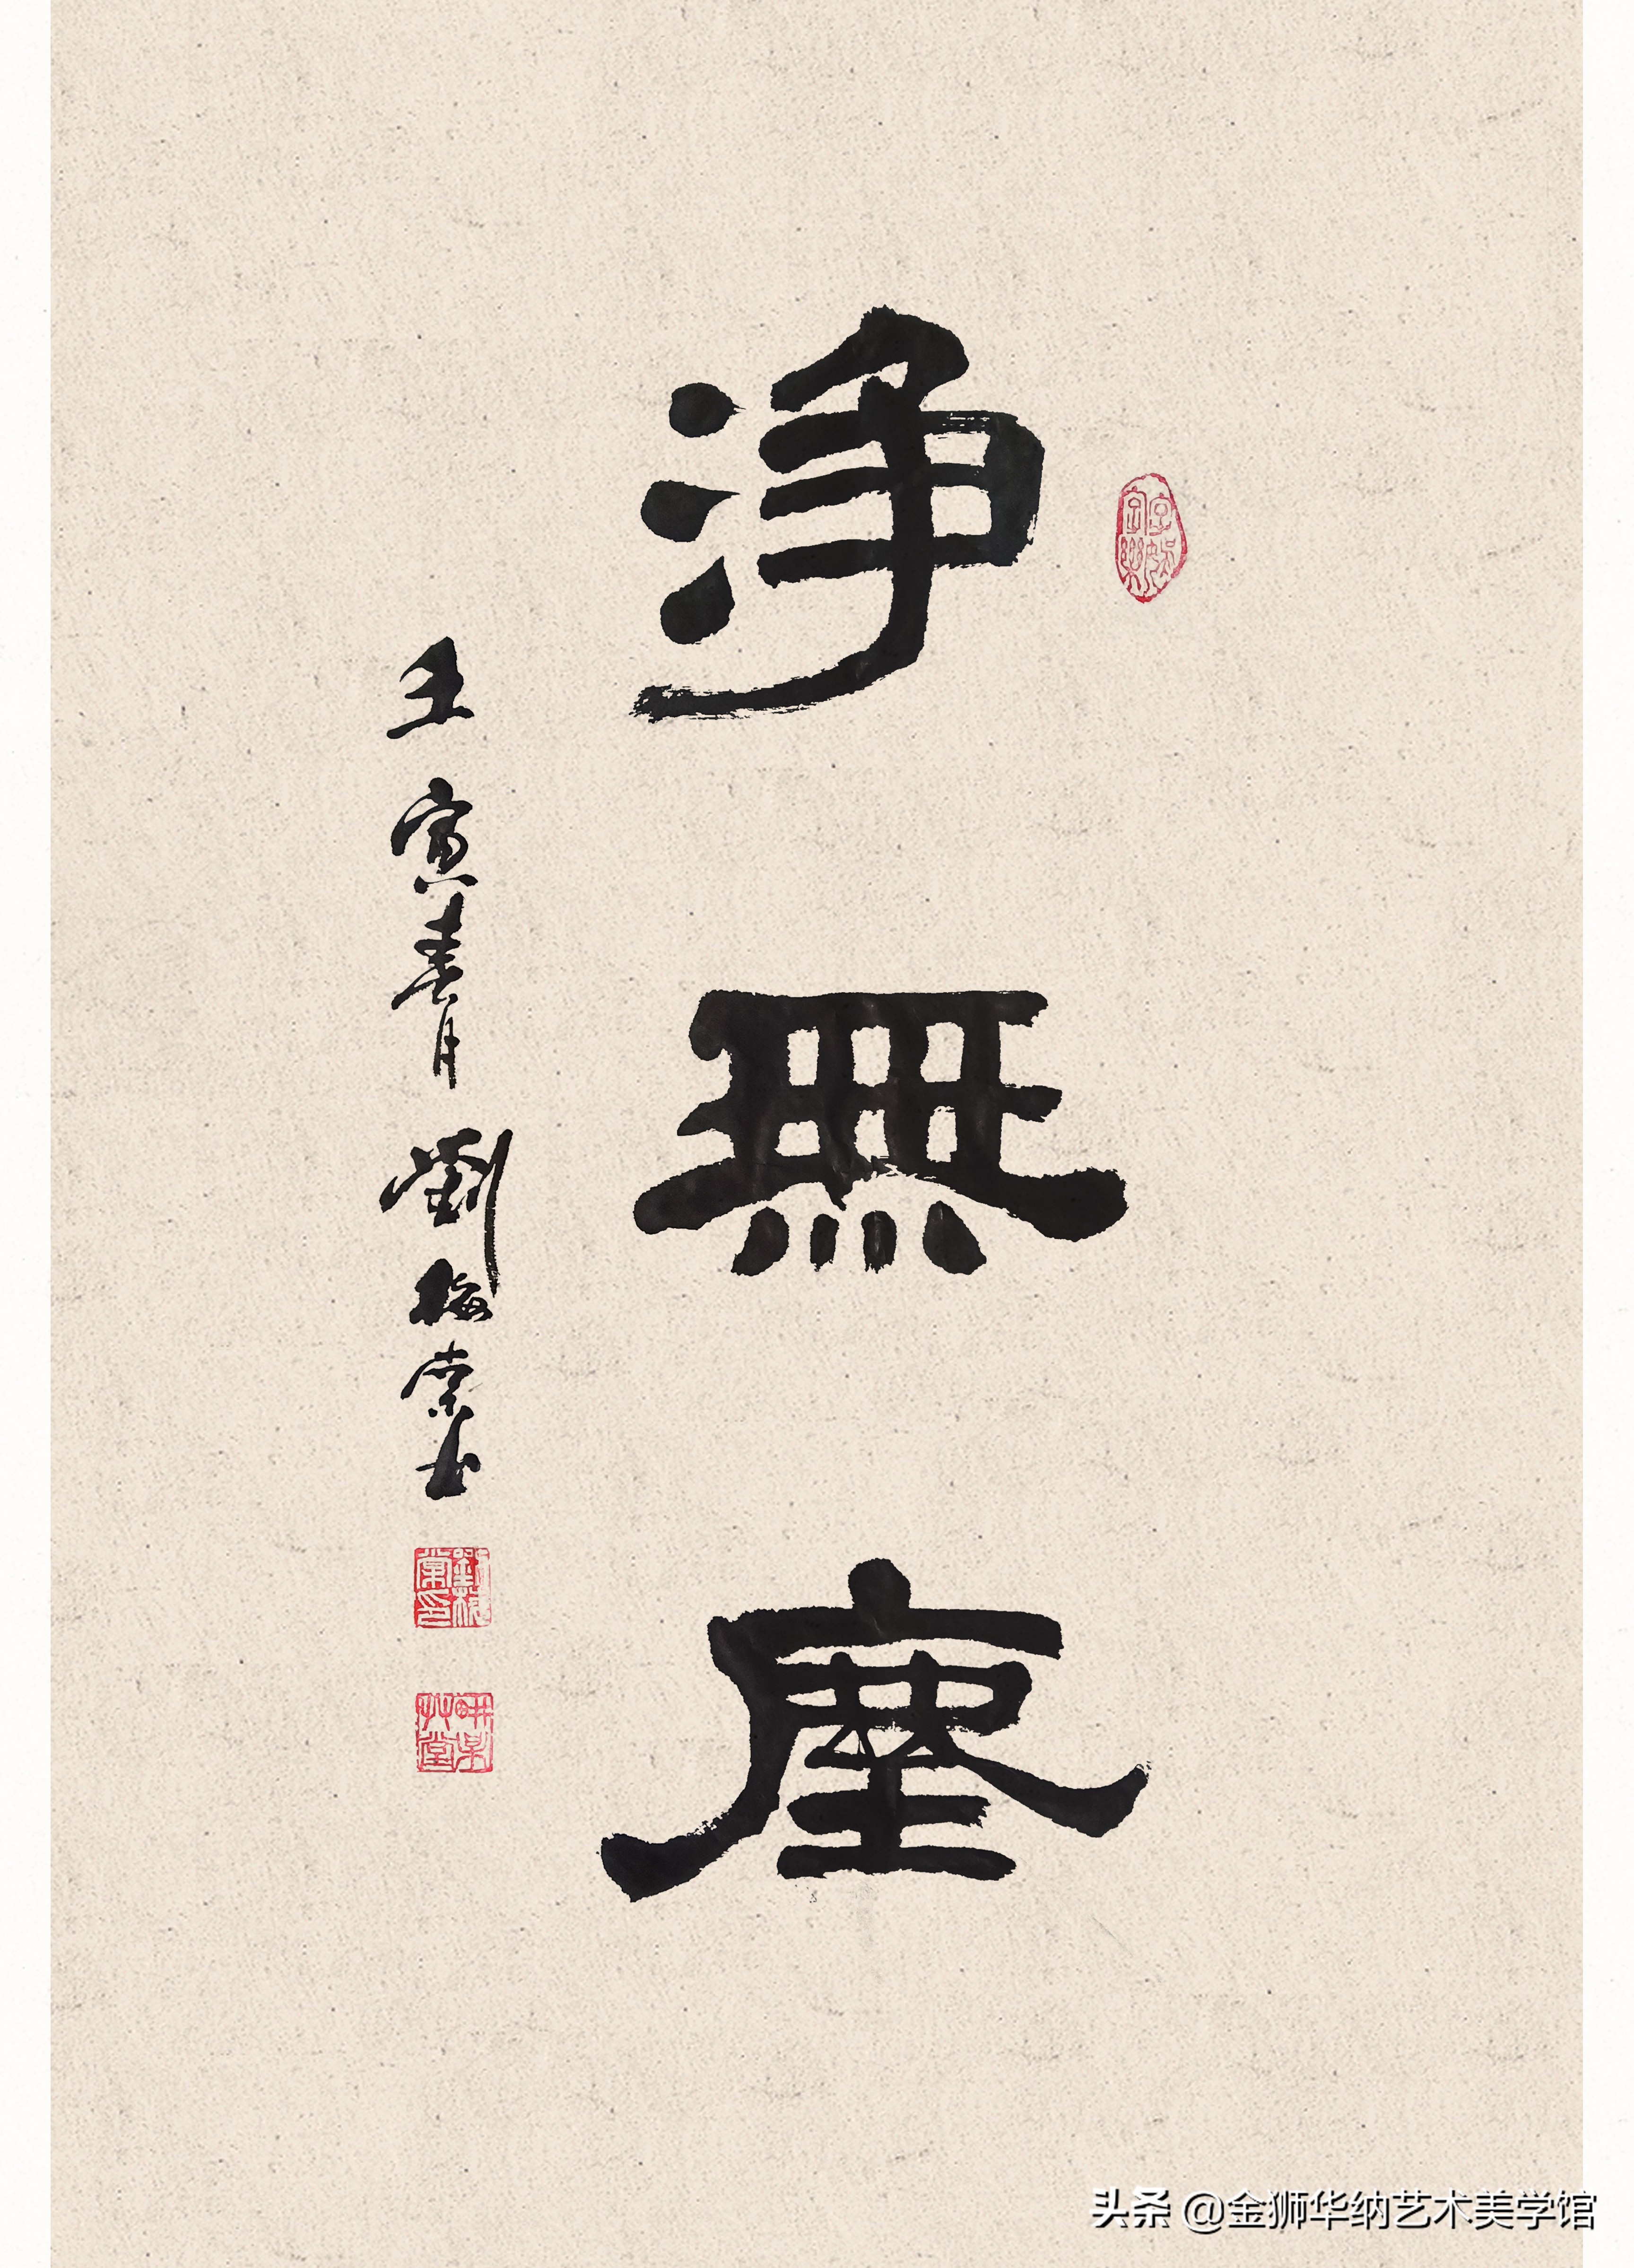 淨無塵
壬寅春月劉梅棠書
頭条 @金狮华纳艺术美学馆